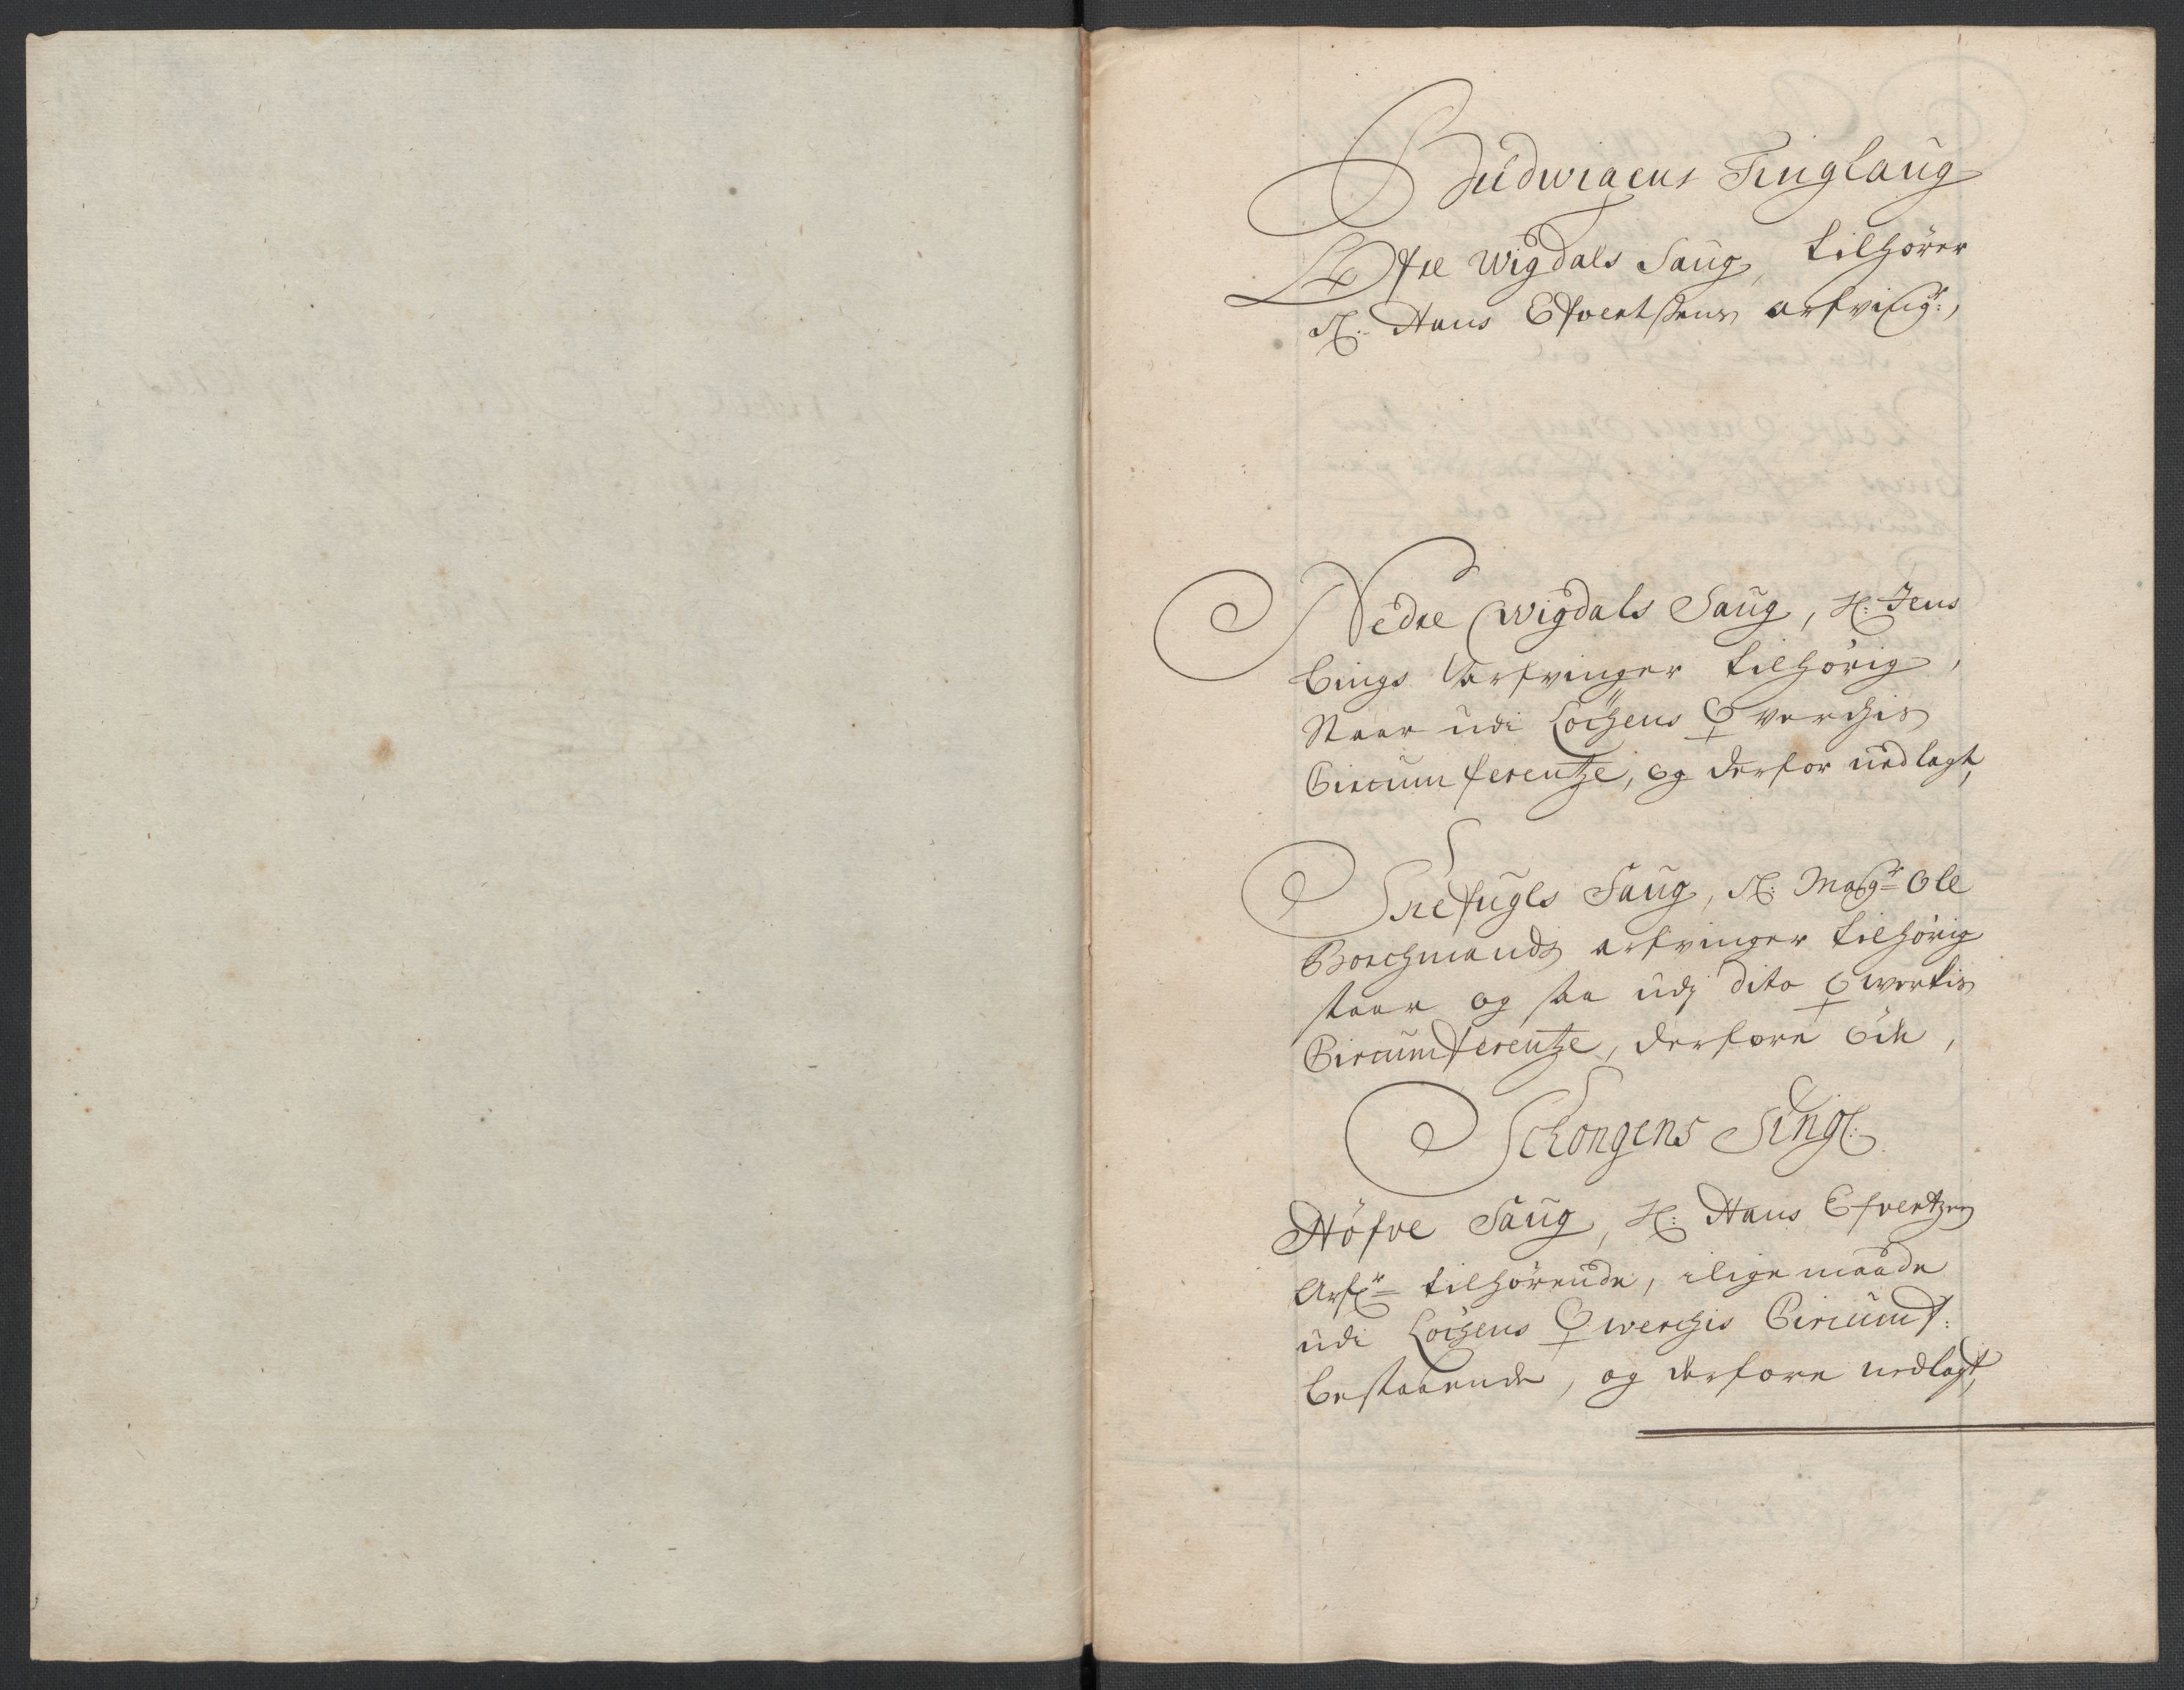 Budwigens Tinglaug
Øfre Wigdals Saug, tilhörer
Sl: Hans Efvertsens arfving:r,
Nedre Wigdals Saug, H: Jens
Bings Arfvinger tilhörig,
Staar udi Löchens ♀verchis
Circumferentze, og derfor nedlagt,
Snefugls Saug, Sl: Mag:r Ole
Borchmands arfvinger tilhörig
staar og saa udj dito ♀werkis
Circumferentze, derfore öde,
Schongens Tingl:
Höfve Saug, H: Hans Efvertzen
Arf:r tilhörende, iligemaade
udi Löchens ♀werchis Circumf:
bestaaende, og derfore nedlagt,